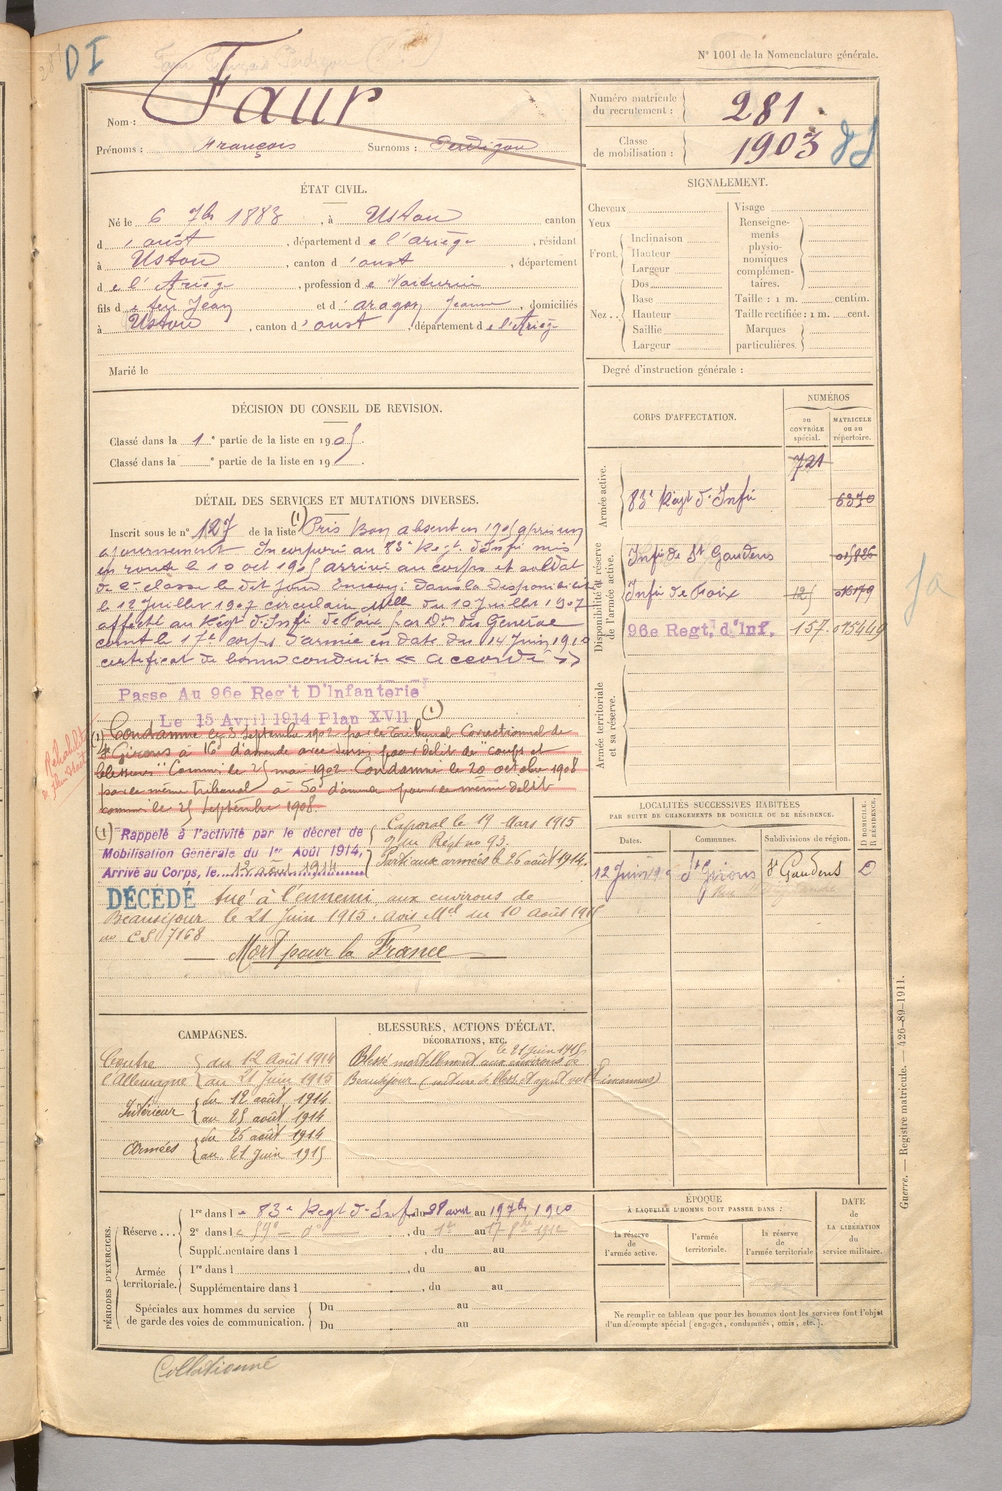 DI
N° 1001 de la Nomenclature générale.
Nom : Faur
Prénoms : François Surnoms : Perdigou
Numéro matricule du recrutement : 281
Classe de mobilisation : 1903
ÉTAT CIVIL.
Né le 6 7bre 1883, à Ustou canton
d'oust, département de l'ariège, résidant
à Ustou, canton d'oust, département
de l'Ariège, profession de Voiturier
fils de feu Jean et d'aragon Jeanne, domiciliés
à Ustou, canton d'oust, département de l'Ariège
Marié le
DÉCISION DU CONSEIL DE REVISION.
Classé dans la 1e partie de la liste en 1905.
Classé dans la e partie de la liste en 19 .
DÉTAIL DES SERVICES ET MUTATIONS DIVERSES.
Inscrit sous le n° 127 de la liste (1) Pris bon absent en 1905 après un
ajournement. Incorporé au 83e Régt d'Infie mis
en route le 10 oct 1905 arrivé au corps et soldat
de 2e classe le dit jour. Envoyé dans la disponibilité
le 12 Juillet 1907 circulaire Mlle du 10 Juillet 1907
affecté au Régt d'Infie de Foix par Don du Général
comt le 17e corps d'armée en date du 14 Juin 1910
certificat de bonne conduite « accordé »
Passé Au 96e Reg't D'Infanterie
Le 15 Avril 1914 Plan XVII (1)
(1) Condamné le 3 Septembre 1902 par le Tribunal Correctionnel de
St Girons à 16f d'amende avec sursis pour délit de "coups et
blessures" Commis le 25 mai 1902 Condamné le 20 octobre 1908
par le même tribunal à 50f d'amende pour le même délit
commis le 25 Septembre 1908.
(1) Rappelé à l'activité par le décret de
Mobilisation Générale du 1er Août 1914,
Arrivé au Corps, le 12 août 1914
Caporal le 19 Mars 1915
du Régt no 93.
Parti aux armées le 26 août 1914.
DÉCÉDÉ tué à l'ennemi aux environs de
Beauséjour le 21 Juin 1915. avis Mel du 10 août 1915
no CS 07168
Mort pour la France
CAMPAGNES.
Contre l'Allemagne du 12 Août 1914
au 21 Juin 1915
Intérieur du 12 août 1914
au 25 août 1914
Armées du 26 août 1914
au 21 Juin 1915
BLESSURES, ACTIONS D'ÉCLAT,
DÉCORATIONS, ETC.
le 21 juin 1915
Blessé mortellement aux environs de
Beauséjour
PÉRIODES D'EXERCICES.
Réserve ...
1re dans le 83e Régt d'Inf, du 28 aout au 19 7bre 1910
2e dans le 59e do, du 1er au 17 8bre 1912
Supplémentaire dans l , du au
Armée territoriale.
1re dans l , du au
Supplémentaire dans l , du au
Spéciales aux hommes du service
de garde des voies de communication.
Du au
Du au
SIGNALEMENT.
Cheveux
Yeux
Front.
Inclinaison
Hauteur
Largeur
Nez ..
Dos
Base
Hauteur
Saillie
Largeur
Visage
Renseignements physionomiques complémentaires.
Taille : 1 m. centim.
Taille rectifiée : 1 m. cent.
Marques particulières.
Degré d'instruction générale :
CORPS D'AFFECTATION.
NUMÉROS
DU CONTRÔLE spécial.
MATRICULE ou au répertoire.
Armée active.
721
83e Régt d'Infie 6370
Disponibilité et réserve de l'armée active.
Infie de St Gaudens
Infie de Foix
96e Regt, d'Inf. 157. 015449
Armée territoriale et sa réserve.
LOCALITÉS SUCCESSIVES HABITÉES
PAR SUITE DE CHANGEMENTS DE DOMICILE OU DE RÉSIDENCE.
Dates. Communes. Subdivisions de région. D DOMICILE. R RÉSIDENCE.
12 Juin St Girons St Gaudens D
ÉPOQUE
À LAQUELLE L'HOMME DOIT PASSER DANS :
la réserve de l'armée active.
l'armée territoriale.
la réserve de l'armée territoriale
DATE de LA LIBÉRATION du service militaire.
Ne remplir ce tableau que pour les hommes dont les services font l'objet
d'un décompte spécial (engagés, condamnés, omis, etc.).
Guerre. — Registre matricule. — 426-89-1911.
Collationné